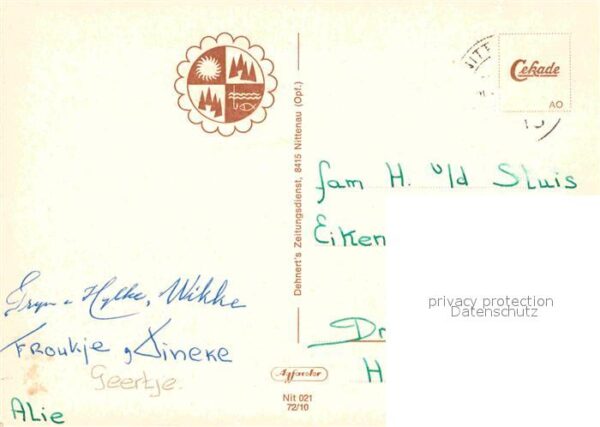 NITT
Cekade
AO
Dehnert's Zeitungsdienst, 8415 Nittenau (Opf.)
fam H. v/d Sluis
Eiken
privacy protection
Datenschutz
Hylke, Wikke
Froukje, Dineke
Geertje.
Alie
Dr
H
Nit 021
72/10